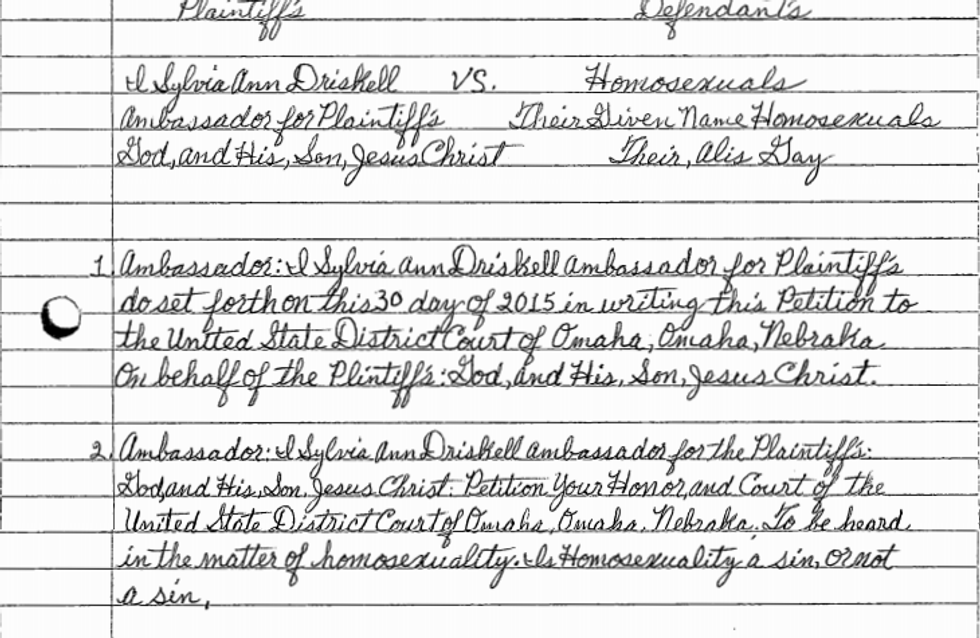 Plaintiff's Defendant's
I Sylvia Ann Driskell VS. Homosexuals
Ambassador for Plaintiff's Their Given Name Homosexuals
God, and His, Son, Jesus Christ Their, Alis Gay
1. Ambassador: I Sylvia Ann Driskell Ambassador for Plaintiff's
do set forth on this 30 day of 2015 in writing this Petition to
the Untted State District Court of Omaha, Omaha, Nebraka.
On behalf of the Plintiff's: God, and His, Son, Jesus Christ.
2. Ambassador: I Sylvia Ann Driskell ambassador for the Plaintiff's:
God, and His, Son, Jesus Christ. Petition Your Honor, and Court of the
United State District Court of Omaha, Omaha, Nebraka. To be heard
in the matter of homosexuality. Is Homosexuality a sin, or not
a sin,